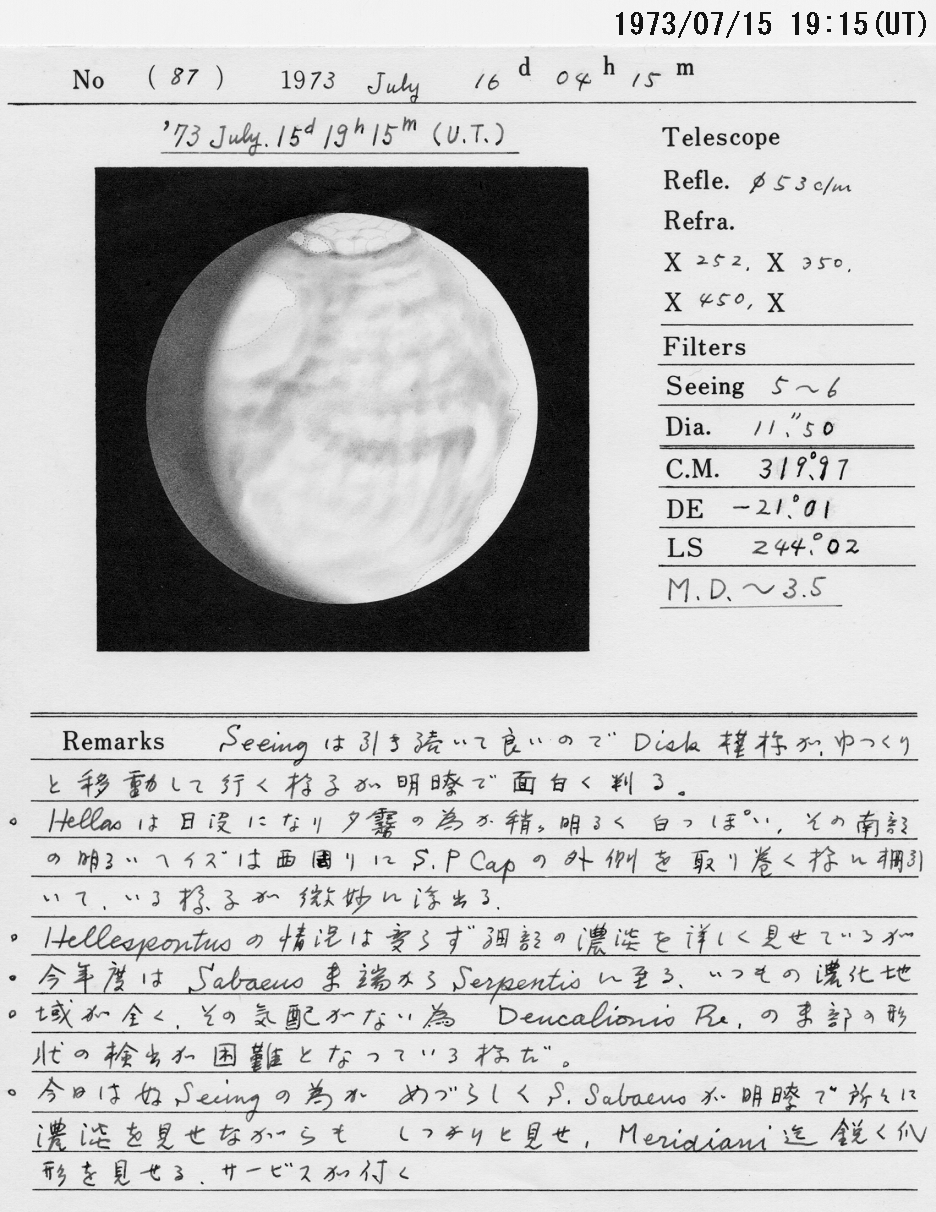 1973/07/15 19:15(UT)
No (87) 1973 July 16d 04h 15m
'73 July. 15d 19h 15m (U.T.)
Telescope
Refle. ϕ53c/m
Refra.
X 252. X 350.
X 450, X
Filters
Seeing 5~6
Dia. 11."50
C.M. 319.°97
DE -21.°01
LS 244.°02
M.D. ~3.5
Remarks Seeing は引き続いて良いので Disk 模様が、ゆっくり
と移動して行く様子が明瞭で面白く判る。
。Hellas は日没になり夕霧の為か稍々明るく白っぽい、その南部
の明るいヘイズは西周りに S.P Cap の外側を取り巻く様に棚引
いて、いる様子が微妙に浮出る、
。Hellespontus の情況は変らず細部の濃淡を詳しく見せているが
。今年度は Sabaeus 東端から Serpentis に至る、いつもの濃化地
。域が全く、その気配がない為 Deucalionis Re, の東部の形
状の検出が困難となっている様だ。
。今日は好 Seeing の為か めづらしく S. Sabaeus が明瞭で所々に
濃淡を見せながらも しっかりと見せ, Meridiani 迄鋭く爪
形を見せる、サービスが付く